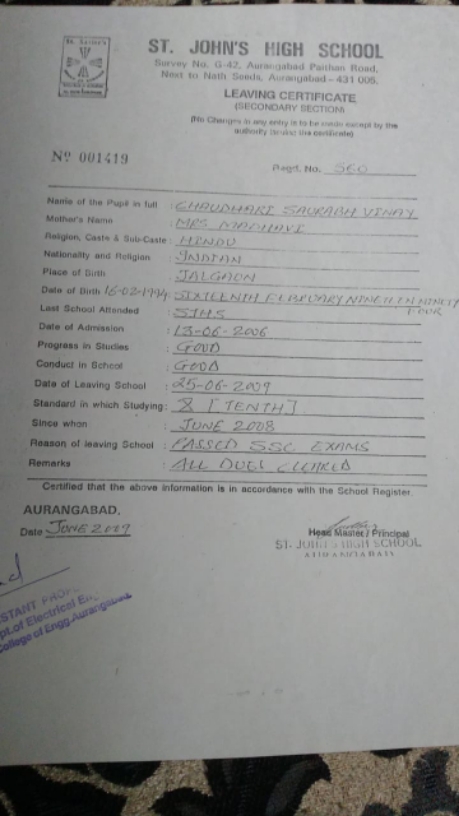 ST. JOHN'S HIGH SCHOOL
Survey No. G-42, Aurangabad Paithan Road,
Next to Nath Seeds, Aurangabad - 431 005.
LEAVING CERTIFICATE
(SECONDARY SECTION)
(No Changes in any entry is to be made except by the
authority issuing the certificate)
Nº 001419
Regd. No. 560
Name of the Pupil in full : CHAUDHARI SAURABH VINAY
Mother's Name : MRS MADHAVI
Religion, Caste & Sub-Caste : HINDU
Nationality and Religion : INDIAN
Place of Birth : JALGAON
Date of Birth 16-02-1994 : SIXTEENTH FEBRUARY NINETEEN NINETY
FOUR
Last School Attended : SJHS
Date of Admission : 13-06-2006
Progress in Studies : GOOD
Conduct in School : GOOD
Date of Leaving School : 25-06-2009
Standard in which Studying : X [TENTH]
Since when : JUNE 2008
Reason of leaving School : PASSED SSC EXAMS
Remarks : ALL DUES CLEARED
Certified that the above information is in accordance with the School Register.
AURANGABAD,
Date JUNE 2009
Head Master / Principal
ST. JOHN'S HIGH SCHOOL
AURANGABAD
STANT PROF
pt.of Electrical En
College of Engg.Aurangabad